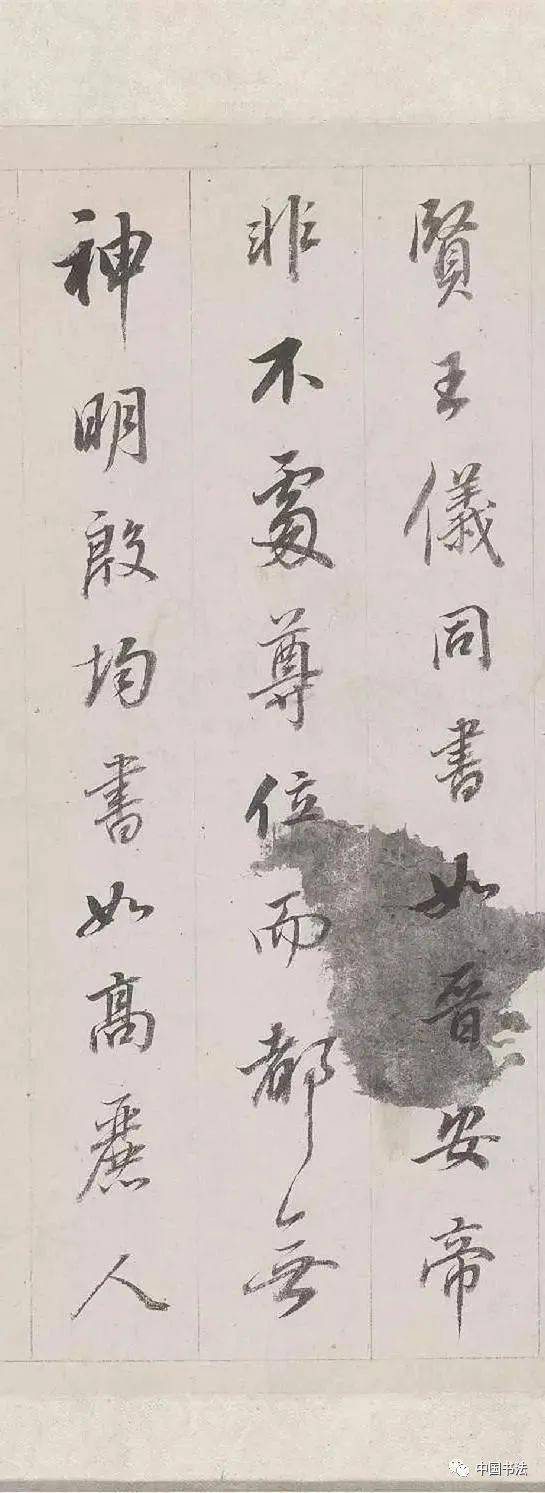 賢王儀同書如晉安帝
非不處尊位而都無
神明殷均書如高麗人
中国书法